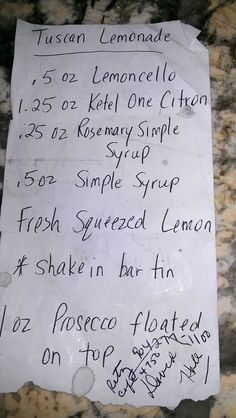 Tuscan Lemonade
.5 oz Lemoncello
1.25 oz Ketel One Citron
.25 oz Rosemary Simple
Syrup
.5 oz Simple Syrup
Fresh Squeezed Lemon
* Shake in bar tin
1 oz Prosecco floated
on top
David Hall